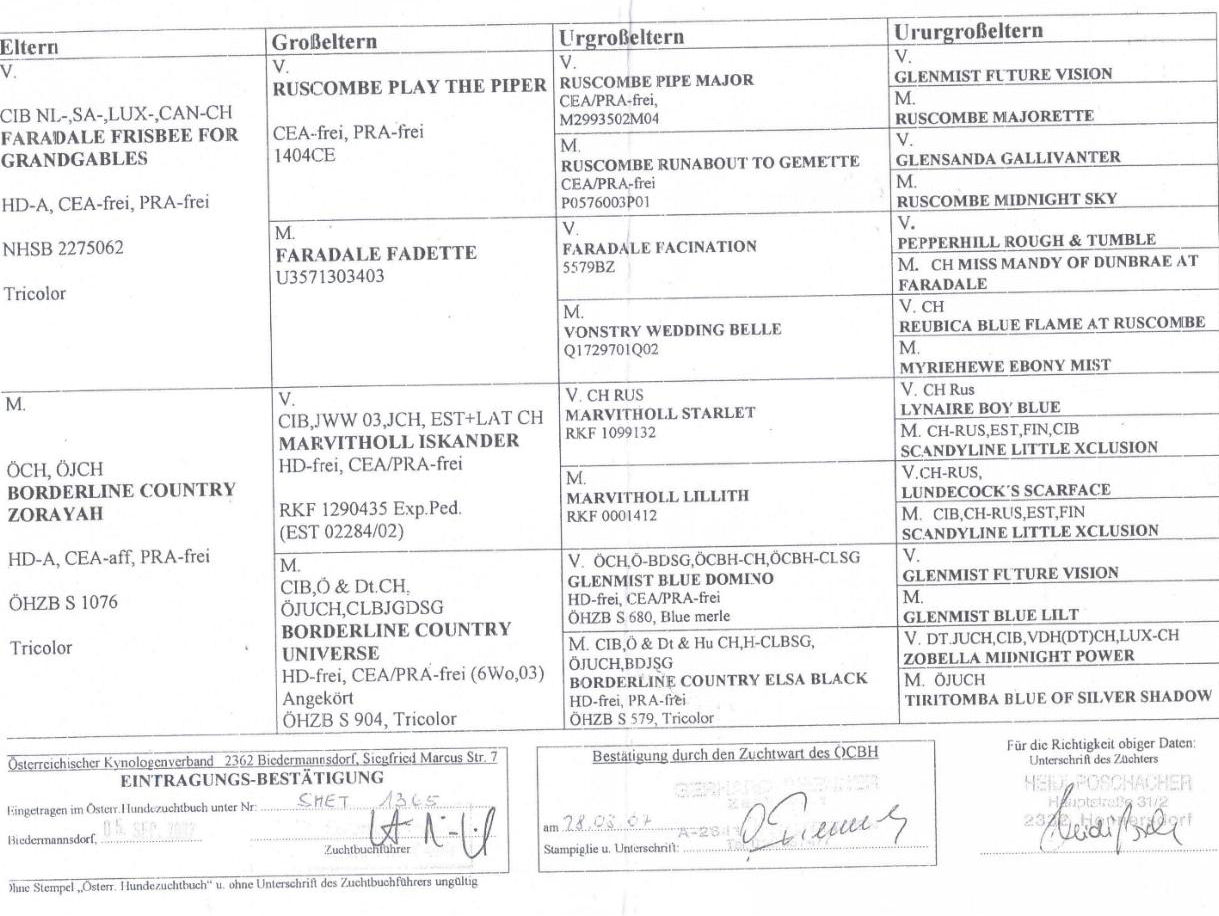 Eltern
V.
CIB NL-,SA-,LUX-,CAN-CH
FARADALE FRISBEE FOR
GRANDGABLES
HD-A, CEA-frei, PRA-frei
NHSB 2275062
Tricolor
M.
ÖCH, ÖJCH
BORDERLINE COUNTRY
ZORAYAH
HD-A, CEA-aff, PRA-frei
ÖHZB S 1076
Tricolor
Großeltern
V.
RUSCOMBE PLAY THE PIPER
CEA-frei, PRA-frei
1404CE
M.
FARADALE FADETTE
U3571303403
V.
CIB,JWW 03,JCH, EST+LAT CH
MARVITHOLL ISKANDER
HD-frei, CEA/PRA-frei
RKF 1290435 Exp.Ped.
(EST 02284/02)
M.
CIB,Ö & Dt.CH,
ÖJUCH,CLBJGDSG
BORDERLINE COUNTRY
UNIVERSE
HD-frei, CEA/PRA-frei (6Wo,03)
Angekört
ÖHZB S 904, Tricolor
Urgroßeltern
V.
RUSCOMBE PIPE MAJOR
CEA/PRA-frei,
M2993502M04
M.
RUSCOMBE RUNABOUT TO GEMETTE
CEA/PRA-frei
P0576003P01
V.
FARADALE FACINATION
5579BZ
M.
VONSTRY WEDDING BELLE
Q1729701Q02
V. CH RUS
MARVITHOLL STARLET
RKF 1099132
M.
MARVITHOLL LILLITH
RKF 0001412
V. ÖCH,Ö-BDSG,ÖCBH-CH,ÖCBH-CLSG
GLENMIST BLUE DOMINO
HD-frei, CEA/PRA-frei
ÖHZB S 680, Blue merle
M. CIB,Ö & Dt & Hu CH,H-CLBSG,
ÖJUCH,BDJSG
BORDERLINE COUNTRY ELSA BLACK
HD-frei, PRA-frei
ÖHZB S 579, Tricolor
Ururgroßeltern
V.
GLENMIST FUTURE VISION
M.
RUSCOMBE MAJORETTE
V.
GLENSANDA GALLIVANTER
M.
RUSCOMBE MIDNIGHT SKY
V.
PEPPERHILL ROUGH & TUMBLE
M. CH MISS MANDY OF DUNBRAE AT
FARADALE
V. CH
REUBICA BLUE FLAME AT RUSCOMBE
M.
MYRIEHEWE EBONY MIST
V. CH Rus
LYNAIRE BOY BLUE
M. CH-RUS,EST,FIN,CIB
SCANDYLINE LITTLE XCLUSION
V.CH-RUS,
LUNDECOCK'S SCARFACE
M. CIB,CH-RUS,EST,FIN
SCANDYLINE LITTLE XCLUSION
V.
GLENMIST FUTURE VISION
M.
GLENMIST BLUE LILT
V. DT.JUCH,CIB,VDH(DT)CH,LUX-CH
ZOBELLA MIDNIGHT POWER
M. ÖJUCH
TIRITOMBA BLUE OF SILVER SHADOW
Österreichischer Kynologenverband 2362 Biedermannsdorf, Siegfried Marcus Str. 7
EINTRAGUNGS-BESTÄTIGUNG
Eingetragen im Österr. Hundezuchtbuch unter Nr: SHET 1365
Biedermannsdorf, 05. SEP.
Zuchtbuchführer
Ohne Stempel „Österr. Hundezuchtbuch" u. ohne Unterschrift des Zuchtbuchführers ungültig
Bestätigung durch den Zuchtwart des ÖCBH
GERHARD
am 28.03.07
Stampiglie u. Unterschrift:
Für die Richtigkeit obiger Daten:
Unterschrift des Züchters
HEIDI POSCHACHER
Hauptstraße 31/2